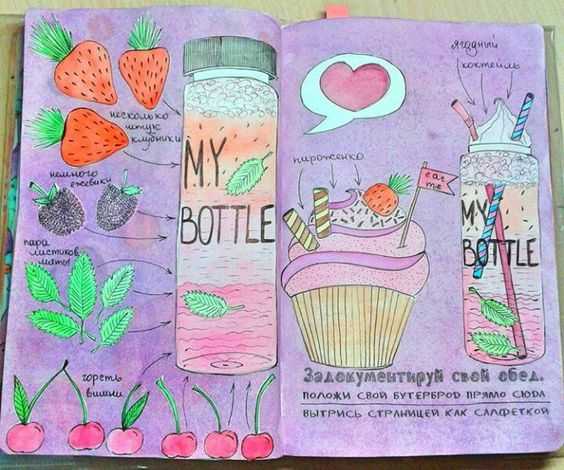 несколько
штук
клубники
немного
ежевики
пара
листиков
мяты
горсть
вишни
MY
BOTTLE
ягодный
коктейль
пироженко
eat
me
MY
BOTTLE
Задокументируй свой обед.
ПОЛОЖИ СВОЙ БУТЕРБРОД ПРЯМО СЮДА
ВЫТРИСЬ СТРАНИЦЕЙ КАК САЛФЕТКОЙ